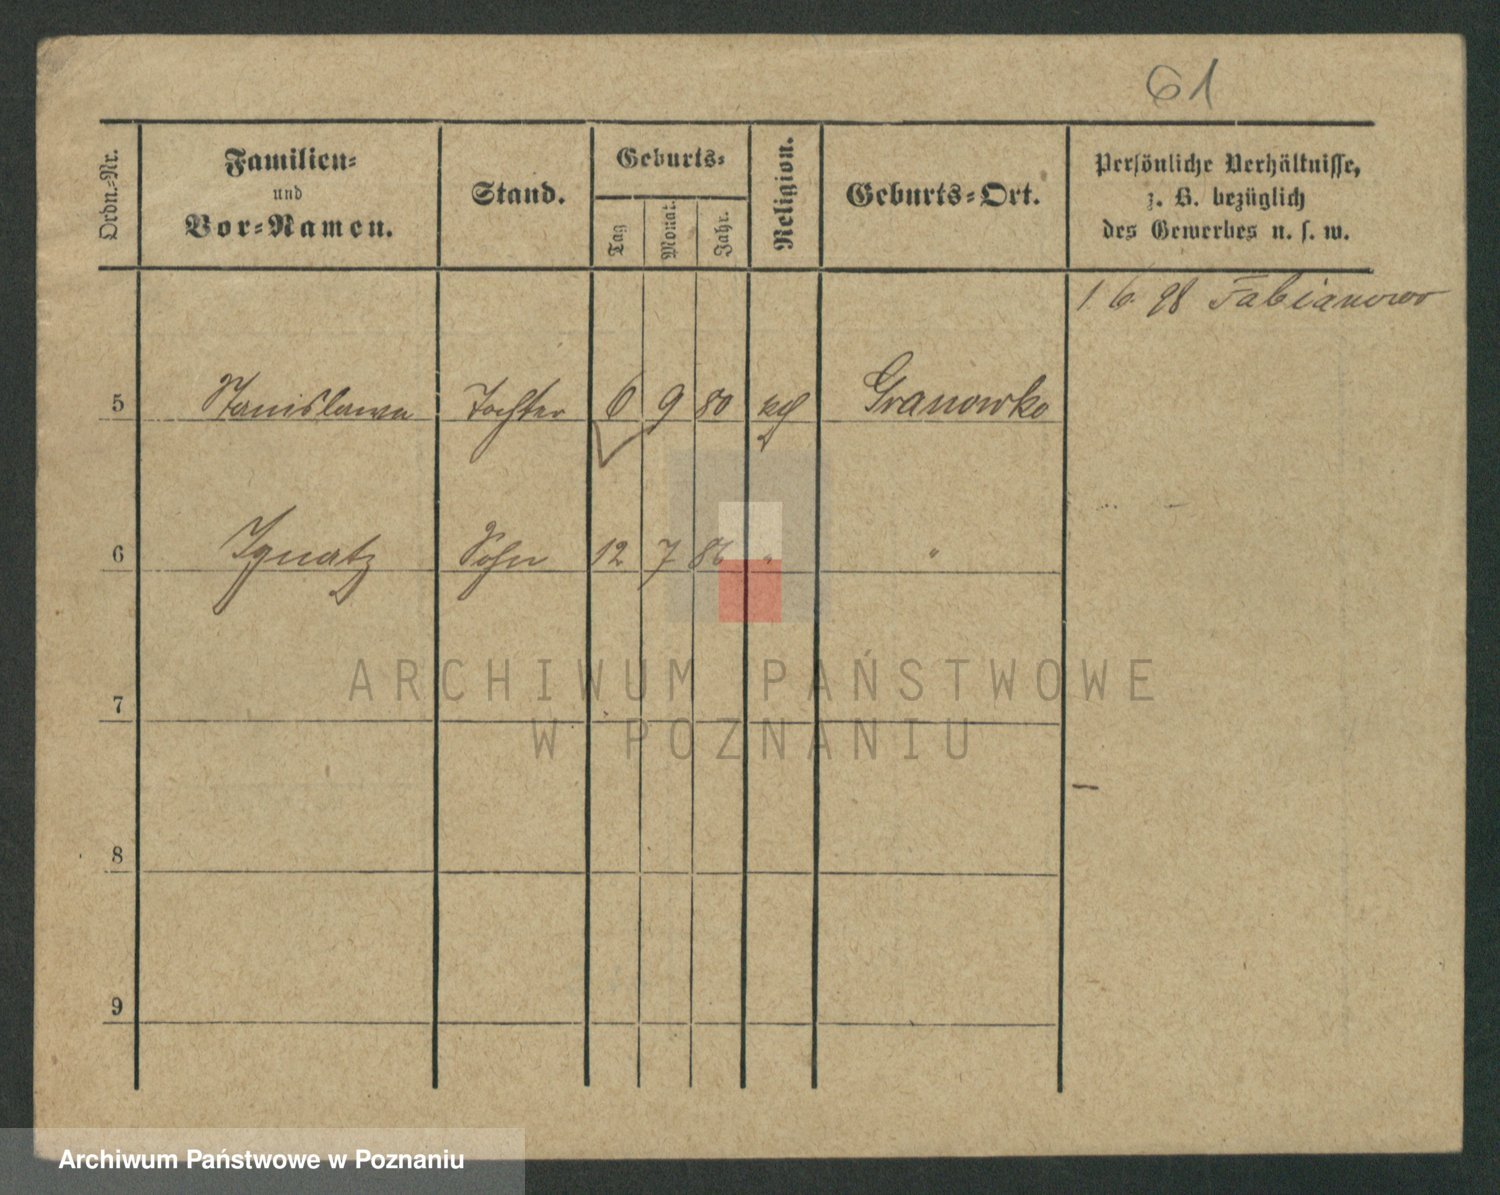 61
Ordn.-Nr.
Familien-
und
Vor-Namen.
Stand.
Geburts-
Tag
Monat.
Jahr.
Religion.
Geburts-Ort.
Persönliche Verhältnisse,
z. B. bezüglich
des Gewerbes u. s. w.
1 6 98 Fabianowo
5 Stanislawa Tochter 6 9 80 Granowko
6 Ignatz Sohn 12 7 86 " "
7
8
9
ARCHIWUM PAŃSTWOWE
W POZNANIU
Archiwum Państwowe w Poznaniu